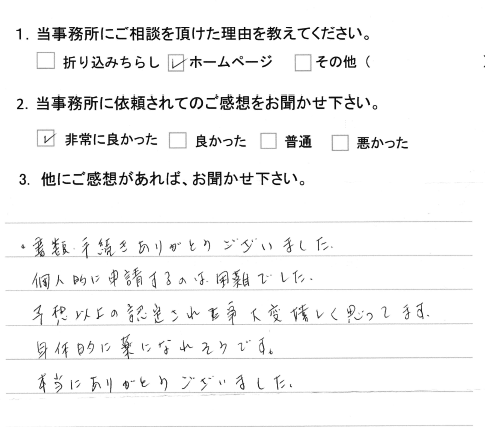 1. 当事務所にご相談を頂けた理由を教えてください。
折り込みちらし ホームページ その他（ ）
2. 当事務所に依頼されてのご感想をお聞かせ下さい。
非常に良かった 良かった 普通 悪かった
3. 他にご感想があれば、お聞かせ下さい。
・書類、手続きありがとうございました。
個人的に申請するのは困難でした。
予想以上の認定され事大変嬉しく思ってます。
身体的に楽になれそうです。
本当にありがとうございました。